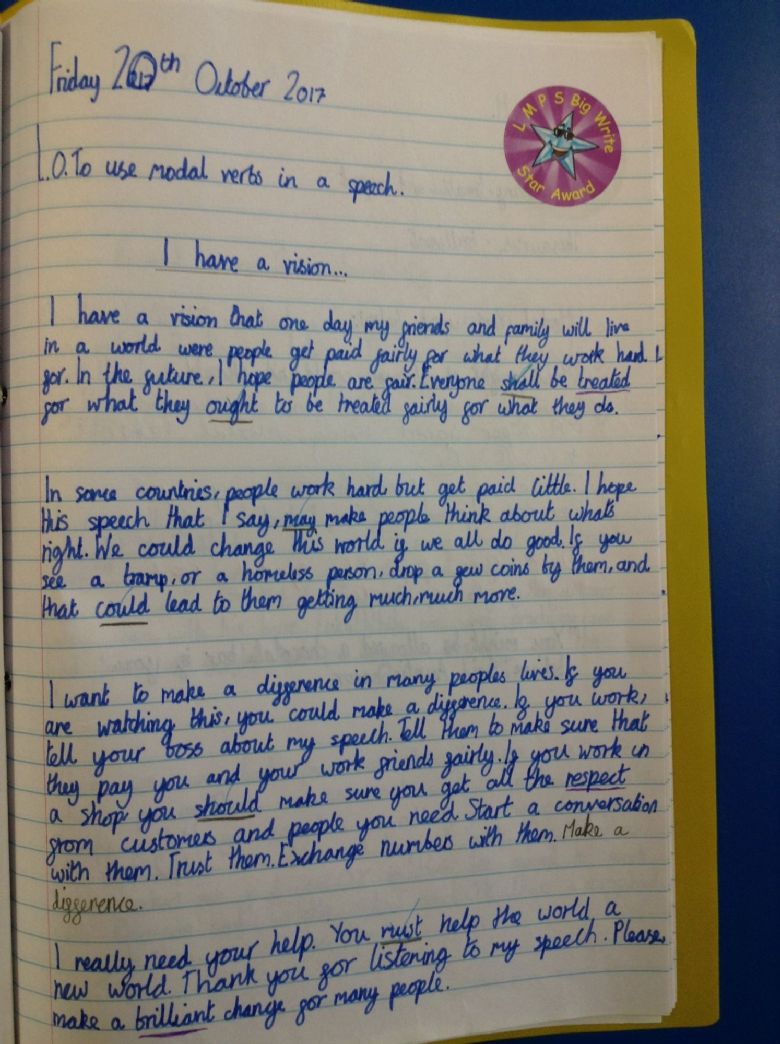 Friday 20th October 2017
LMPS Big Write
Star Award
L.O. To use modal verbs in a speech.
I have a vision...
I have a vision that one day my friends and family will live
in a world were people get paid fairly for what they work hard
for. In the future, I hope people are fair. Everyone shall be treated
for what they ought to be treated fairly for what they do.
In some countries, people work hard but get paid little. I hope
this speech that I say, may make people think about whats
right. We could change this world if we all do good. If you
see a tramp, or a homeless person, drop a few coins by them, and
that could lead to them getting much, much more.
I want to make a difference in many peoples lives. If you
are watching this, you could make a difference. If you work,
tell your boss about my speech. Tell them to make sure that
they pay you and your work friends fairly. If you work in
a shop you should make sure you get all the respect
from customers and people you need. Start a conversation
with them. Trust them. Exchange numbers with them. Make a
difference.
I really need your help. You must help the world a
new world. Thank you for listening to my speech. Please,
make a brilliant change for many people.